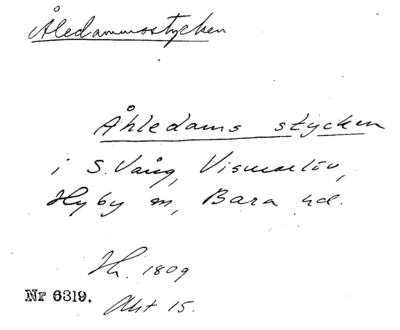 Åledammsstycken
Åhledams stycken
i S. Vång, Vismarlöv,
Hyby sn, Bara hd.
Hh. 1809
Nr 6319.
Akt 15.